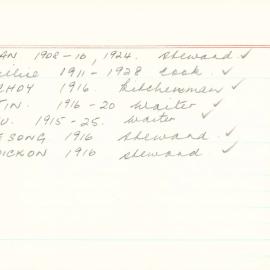 AN 1908-10, 1924. Steward. ✓
illie 1911-1928 Cook. ✓
CHOY 1916. Kitchenman ✓
TIN. 1916-20 Waiter ✓
U. 1915-25. Waiter ✓
SONG 1916 Steward. ✓
DICKON 1916 Steward. ✓